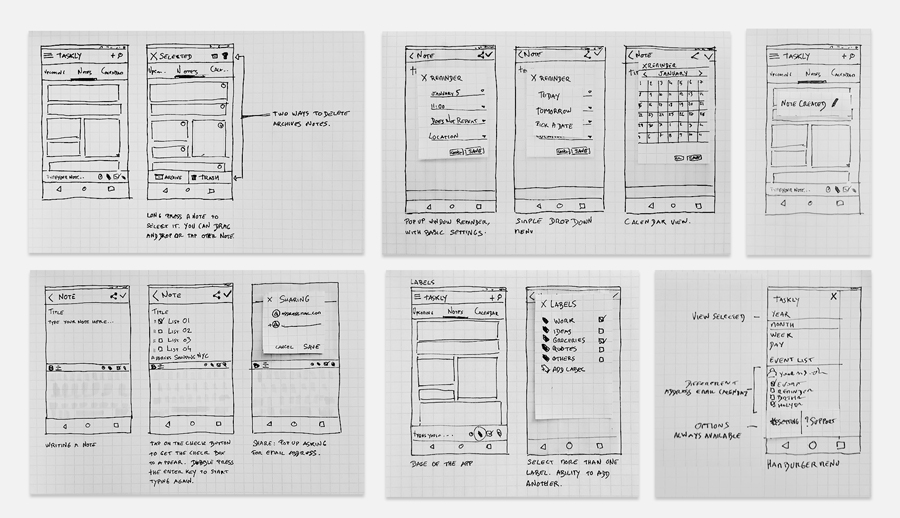 TASKLY
UPCOMING NOTES CALENDAR
X SELECTED
NOTES
ARCHIVE TRASH
TWO WAYS TO DELETE
ARCHIVES NOTES.
LONG PRESS A NOTE TO
SELECT IT. YOU CAN DRAG
AND DROP OR TAP OTHER NOTE
NOTE
X REMINDER
JANUARY 5
11:00
DOES NOT REPEAT
LOCATION
SAVE
POP UP WINDOW REMINDER,
WITH BASIC SETTINGS.
NOTE
X REMINDER
TODAY
TOMORROW
PICK A DATE
SAVE
SIMPLE DROP DOWN
MENU
NOTE
X REMINDER
JANUARY
SAVE
CALENDAR VIEW.
TASKLY
UPCOMING NOTES CALENDAR
NOTE CREATED
NOTE
TITLE
TYPE YOUR NOTE HERE...
WRITING A NOTE
NOTE
TITLE
LIST 01
LIST 02
LIST 03
LIST 04
TAP ON THE CHECK BUTTON
TO GET THE CHECK BOX
TO APPEAR. DOBBLE PRESS
THE ENTER KEY TO START
TYPING AGAIN.
X SHARING
CANCEL SAVE
SHARE: POP UP ASKING
FOR EMAIL ADDRESS.
LABELS
TASKLY
UPCOMING NOTES CALENDAR
BASE OF THE APP
X LABELS
WORK
IDEAS
GROCERIES
QUOTES
OTHERS
ADD LABEL
SELECT MORE THAN ONE
LABEL. ABILITY TO ADD
ANOTHER.
TASKLY X
VIEW SELECTED
YEAR
MONTH
WEEK
DAY
EVENT LIST
DIFFERENT
ADDRESS EMAIL CALENDAR
REMINDER
OPTIONS
ALWAYS AVAILABLE
SETTING ? SUPPORT
HAMBURGER MENU